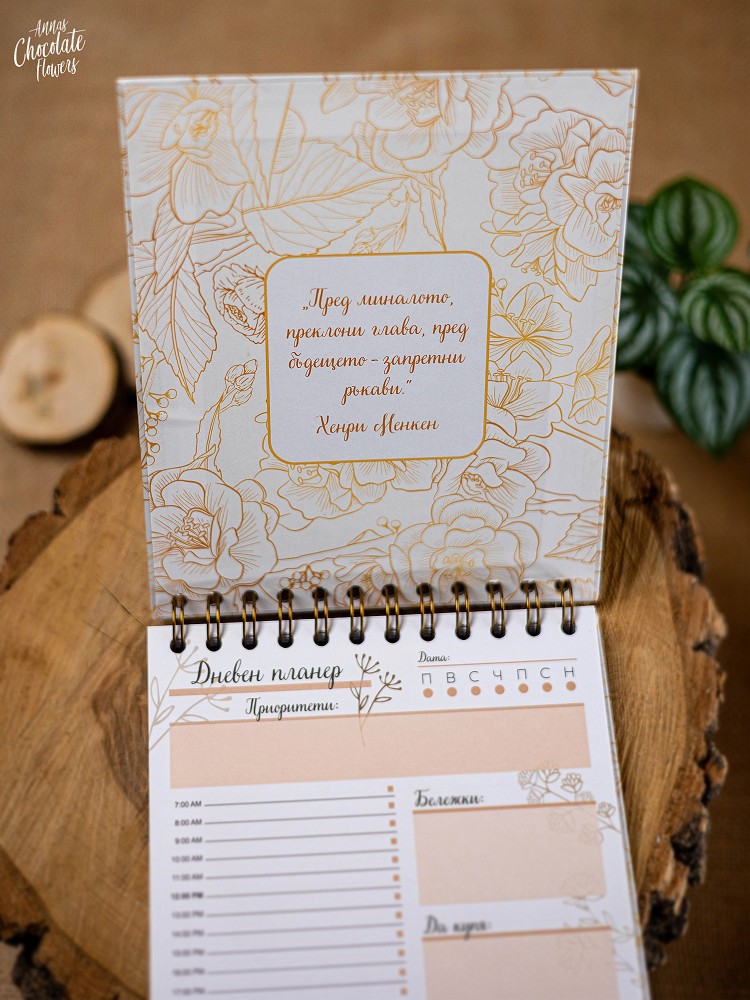 Annas
Chocolate
flowers
„Пред миналото,
преклони глава, пред
бъдещето - запретни
ръкави."
Хенри Менкен
Дневен планер
Дата:
П В С Ч П С Н
Приоритети:
7:00 AM
8:00 AM
9:00 AM
10:00 AM
11:00 AM
12:00 PM
13:00 PM
14:00 PM
15:00 PM
16:00 PM
17:00 PM
Бележки:
Да купя: